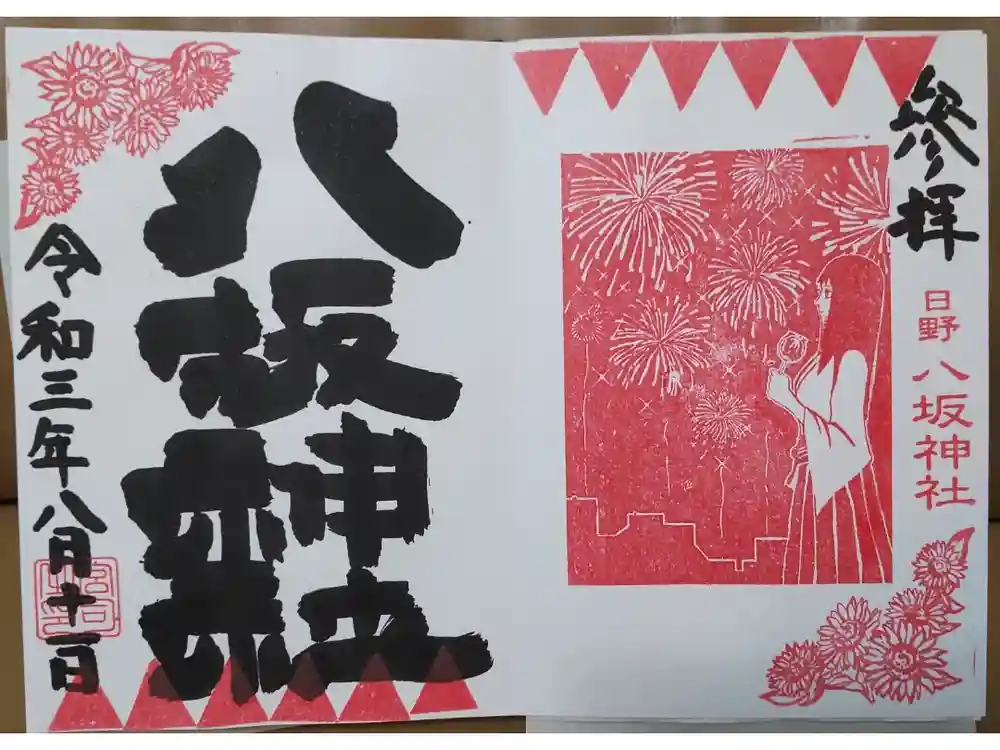 参拝
日野 八坂神社
八坂神社
令和三年八月十一日